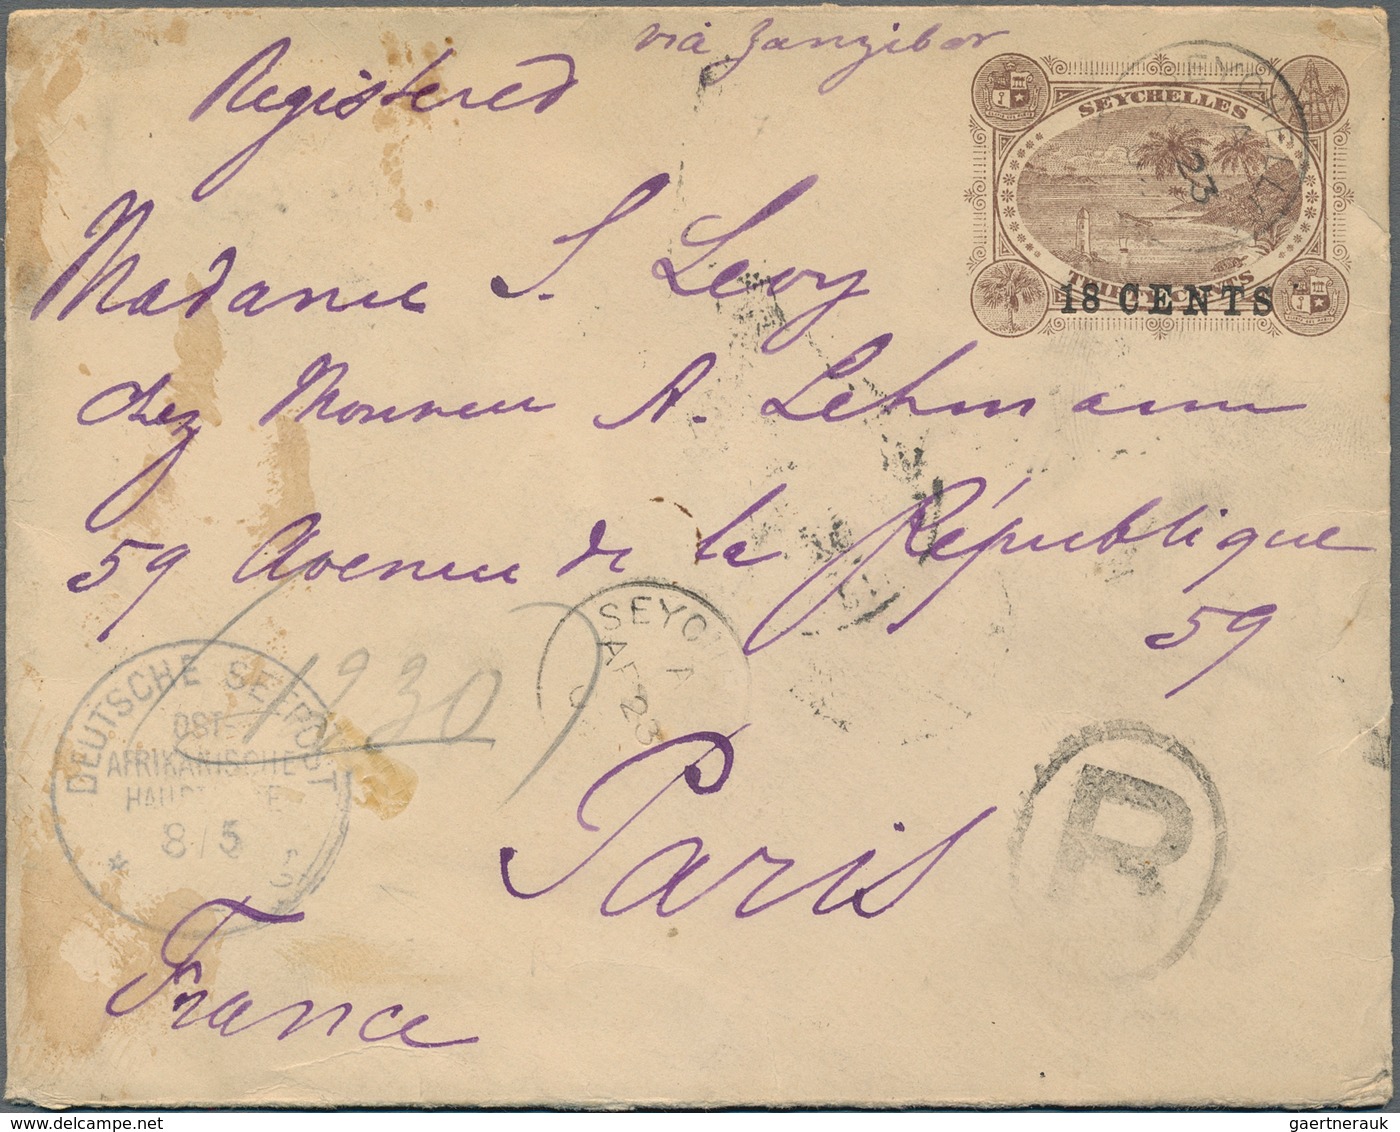 via Zanzibar
Registered
SEYCHELLES
23
THIRTY CENTS
18 CENTS
Madame S. Levy
chez Monsieur A. Lehmann
59 Avenue de la République
59
SEYCH
A
AP 23
1230
DEUTSCHE SEEPOST
OST-
AFRIKANISCHE
HAUPTLINIE
8/5
Paris
R
France
gaertnerauk @ delcampe.net